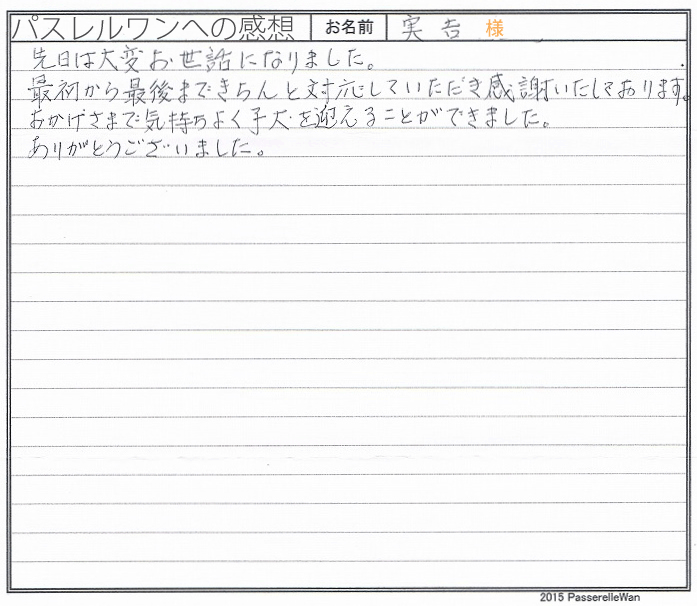 パスレルワンへの感想 お名前 実吉 様
先日は大変お世話になりました。
最初から最後まできちんと対応していただき感謝いたしております。
おかげさまで気持ちよく子犬を迎えることができました。
ありがとうございました。
2015 PasserelleWan